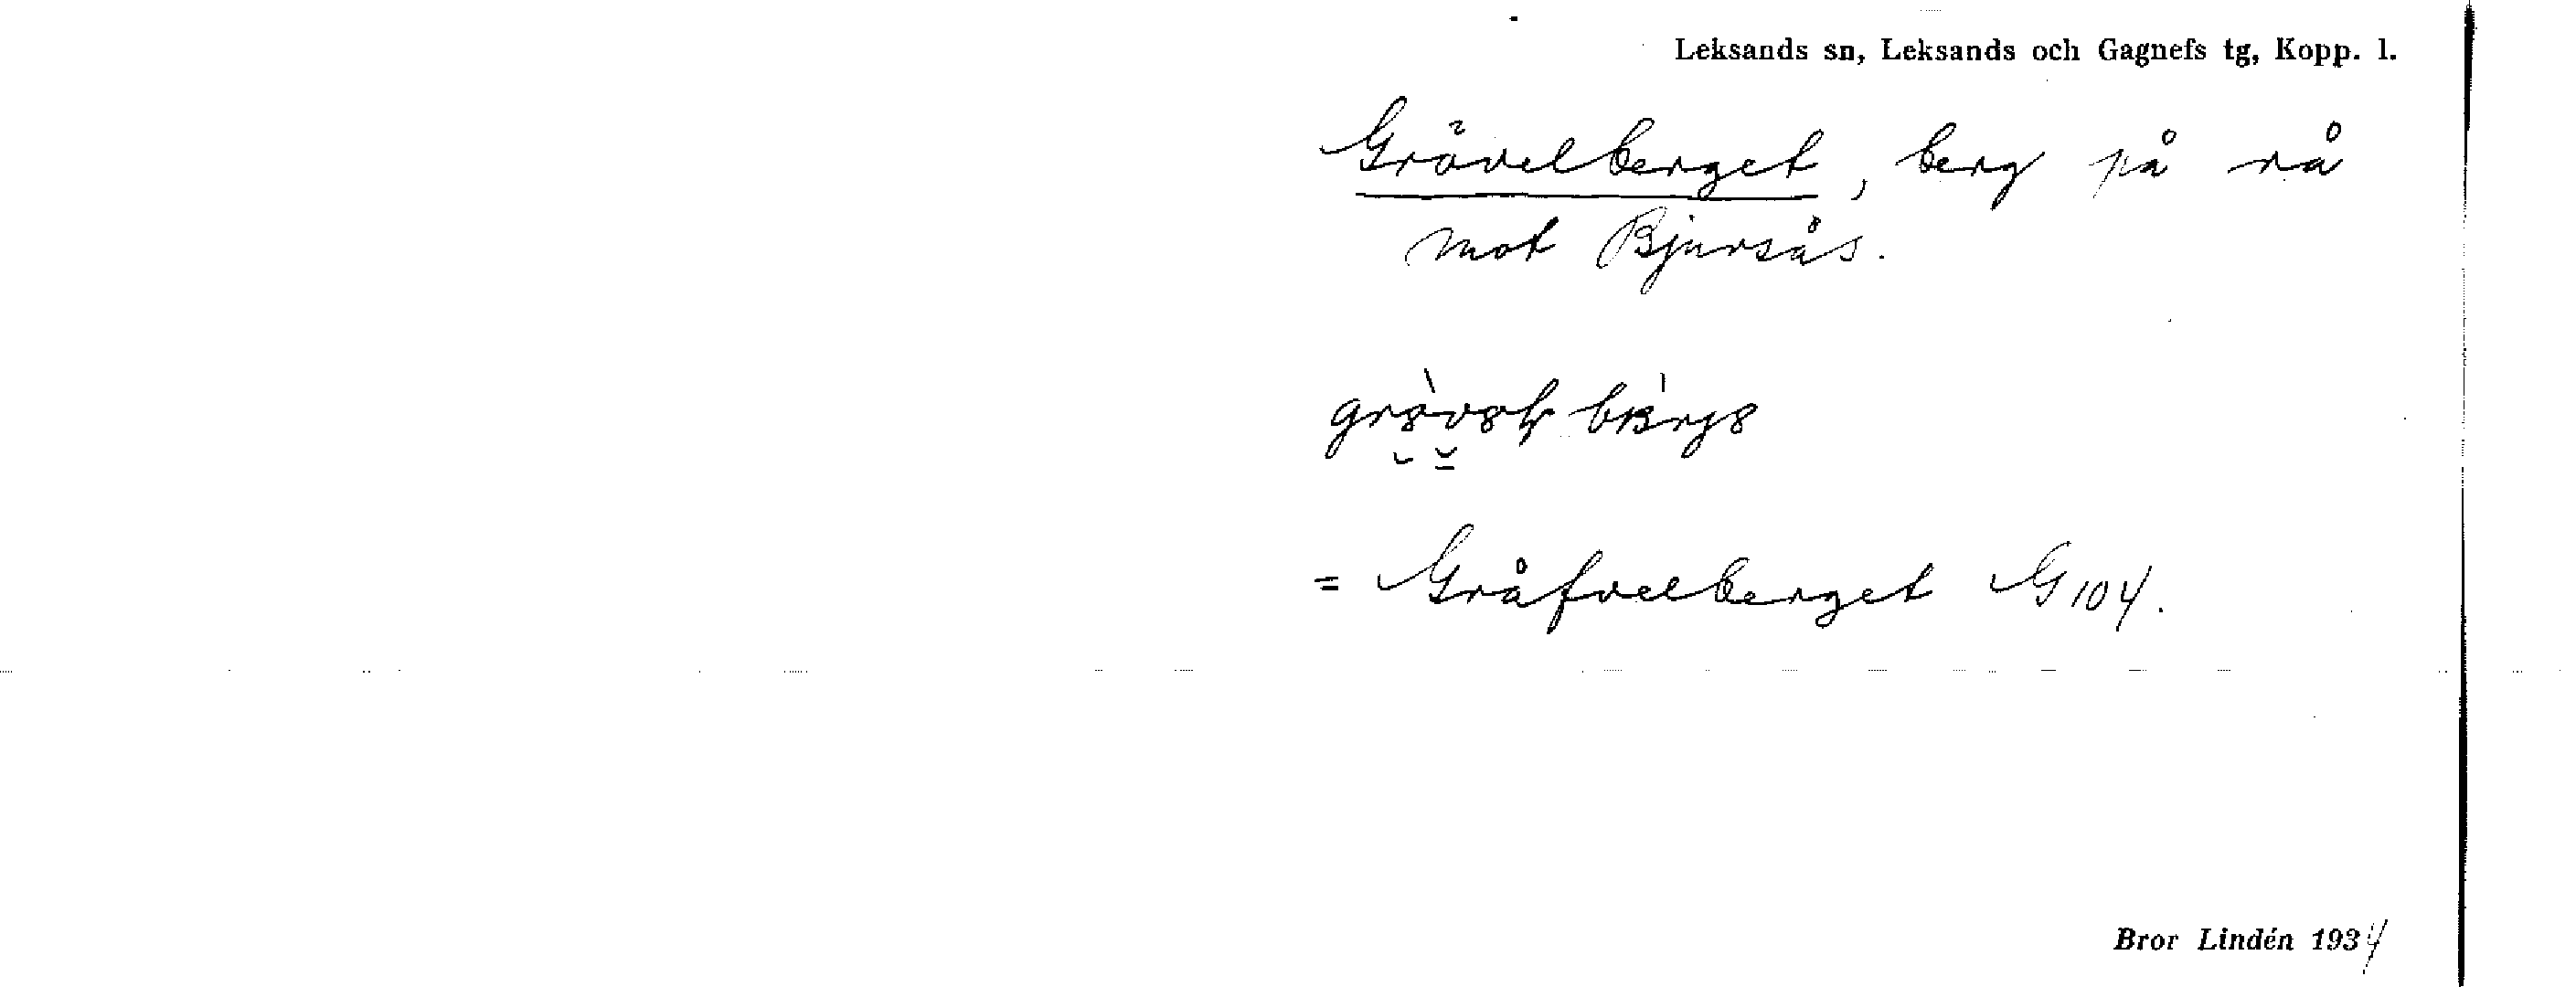 Leksands sn, Leksands och Gagnefs tg, Kopp. l.
Grövelberget, berg på rå
mot Bjursås.
= Gråfvelberget G 104.
Bror Lindén 1934